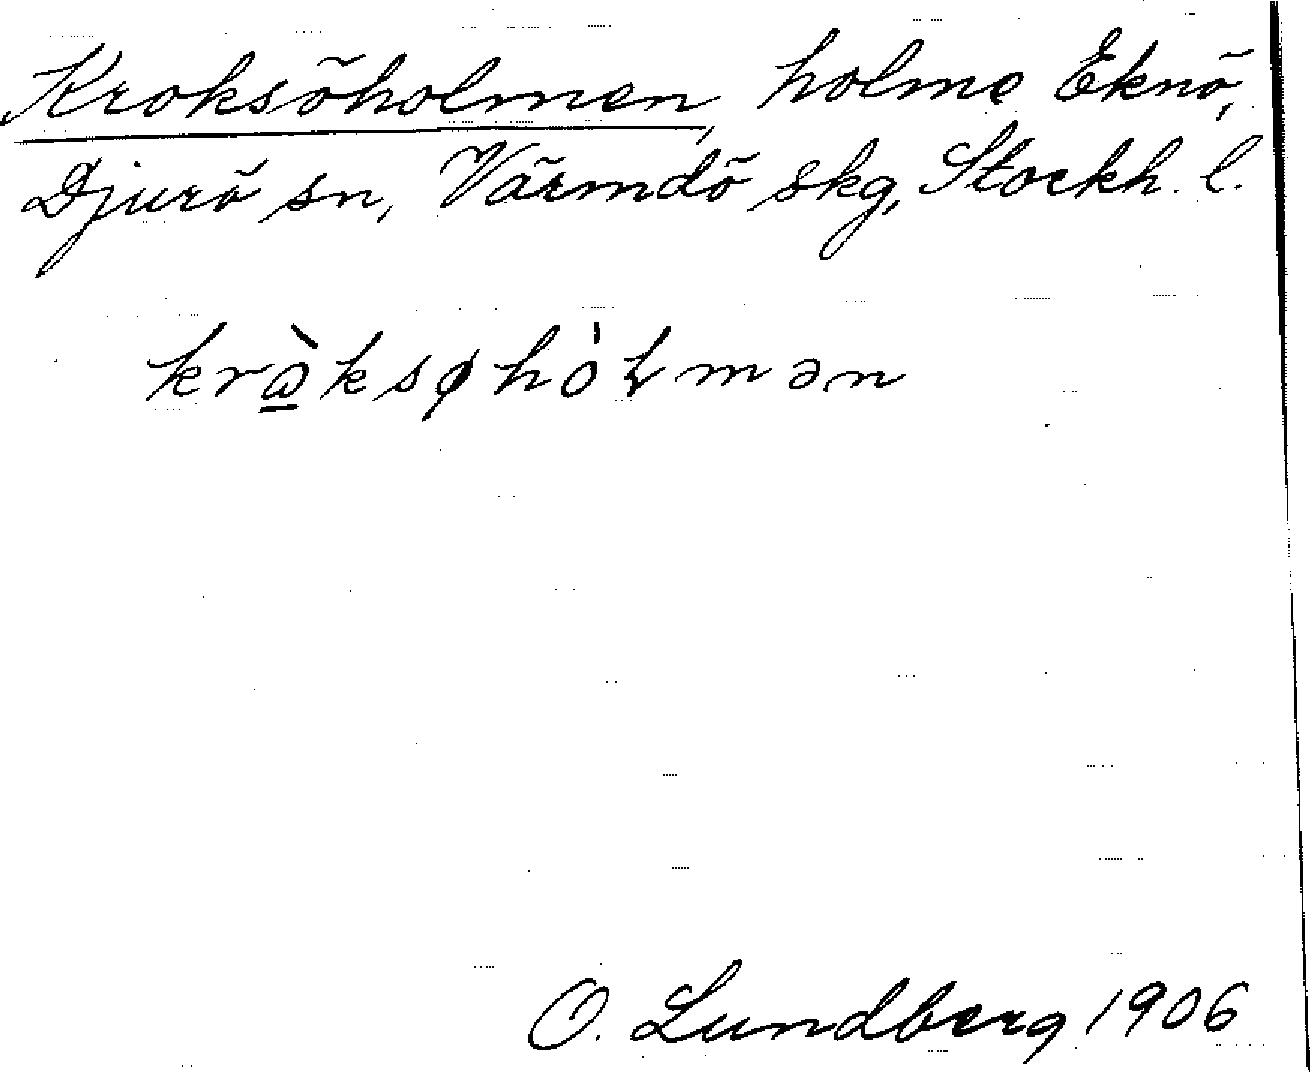 Kroksöholmen, holme Eknö,
Djurö sn, Värmdö skg, Stockh. l.
kròksøhòlmən
O. Lundberg 1906